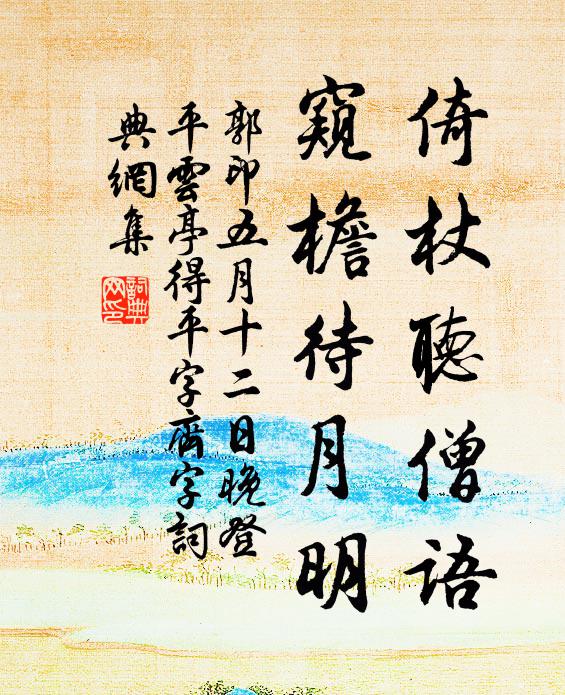 倚杖聽僧語
窺檐待月明
郭印五月十二日晚登
平雲亭得平字齋字詞
典網集
詞典
网印